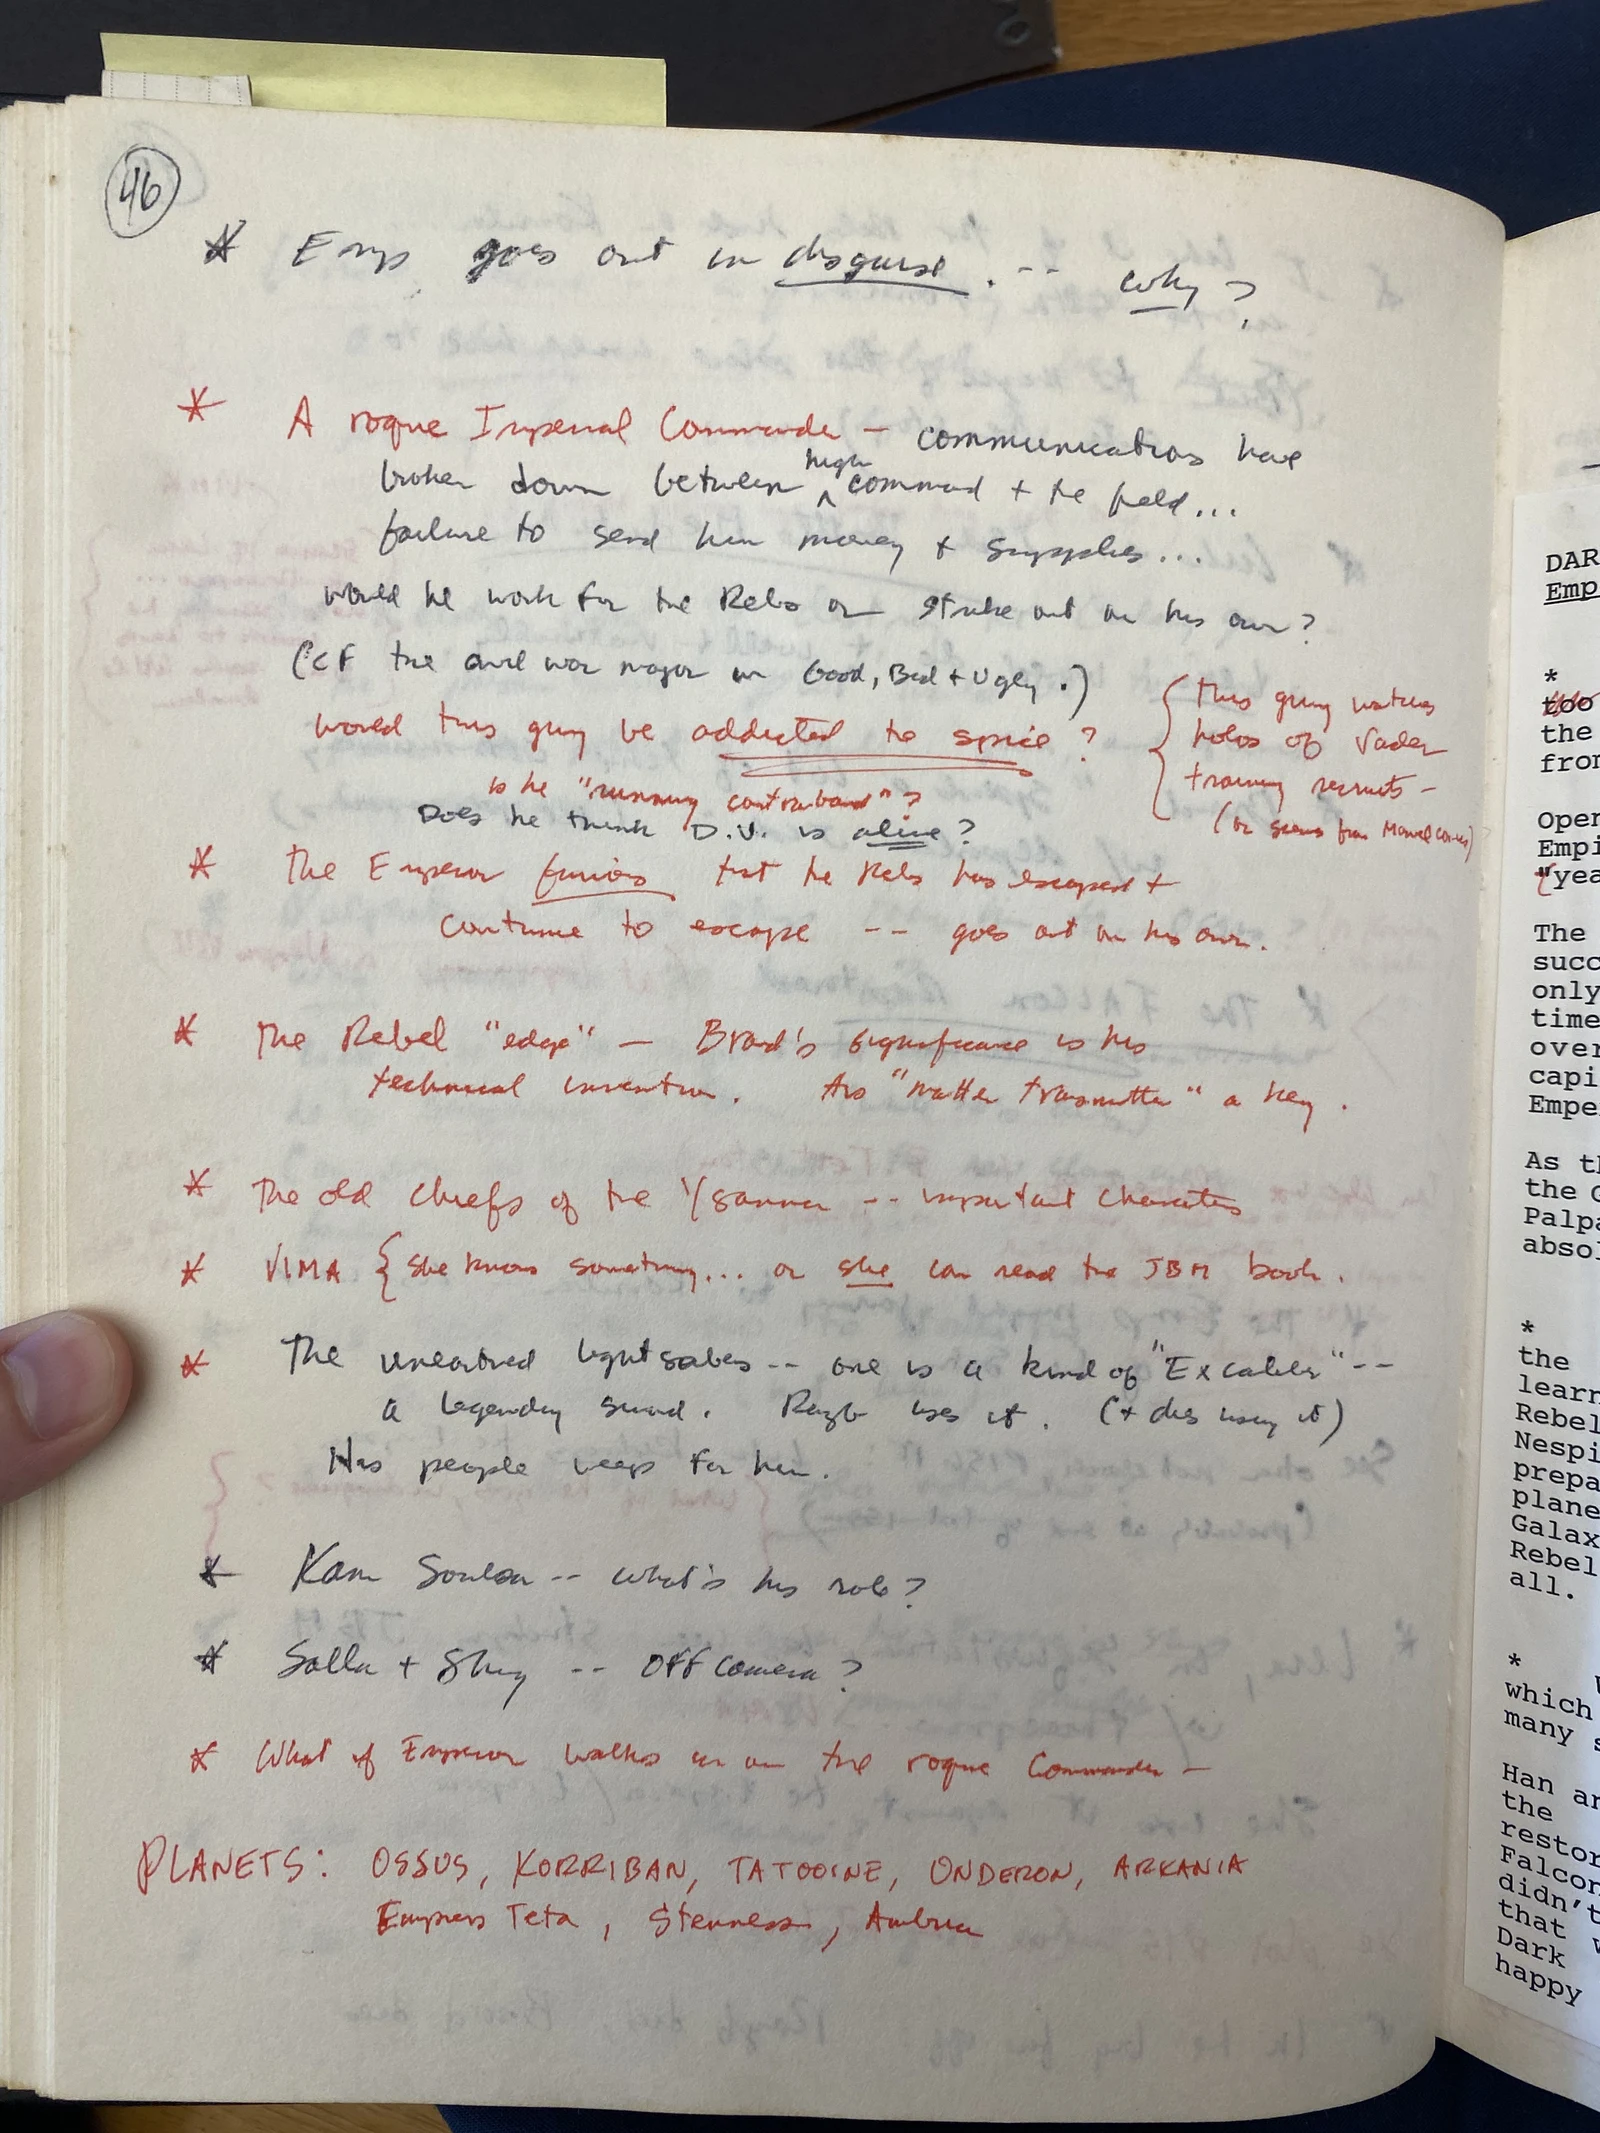 46
* Emp goes out in disguise. -- why?
* A rogue Imperial Commander - communications have
broken down between high command + the field...
failure to send him money & supplies...
would he work for the Rebs or strike out on his own?
(CF the civil war major in Good, Bad + Ugly.)
would this guy be addicted to spice?
{ this guy watches
holos of Vader
training recruits -
(or scenes from Marvel comics)
is he "running contraband"?
Does he think D.V. is alive?
* The Emperor furious that the Rebs has escaped +
continue to escape -- goes out on his own.
* The Rebel "edge" - Brand's significance is his
technical invention. His "matter transmitter" a key.
* The old chiefs of the Ysanna -- important characters
* VIMA { she knows something... or she can read the JBM book.
* The unearthed lightsabers -- one is a kind of "Excaliber" --
a legendary sword. Rayf uses it. (+ dies using it)
His people weep for him.
* Kam Solusar -- what's his role?
* Salla + Shug -- OFF Camera?
* What if Emperor walks in on the rogue Commander -
PLANETS: OSSUS, KORRIBAN, TATOOINE, ONDERON, ARKANIA
Empress Teta, Stenness, Ambria
DAR
Emp
*
too
the
from
Open
Empi
"yea
The
succ
only
time
over
capi
Empe
As th
the G
Palpa
absol
*
the
learn
Rebel
Nespi
prepa
plane
Galax
Rebel
all.
*
which
many s
Han an
the
restor
Falcon
didn't
that w
Dark
happy